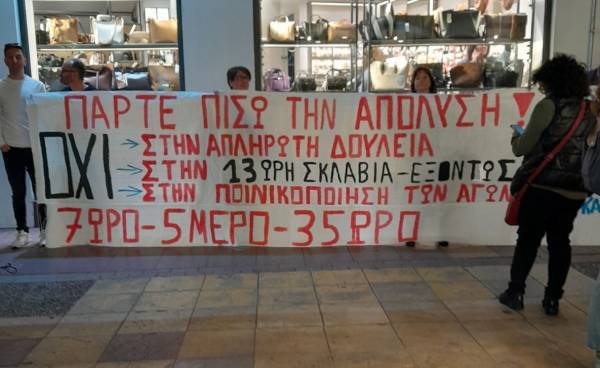 ΠΑΡΤΕ ΠΙΣΩ ΤΗΝ ΑΠΟΛΥΣΗ!
ΟΧΙ → ΣΤΗΝ ΑΠΛΗΡΩΤΗ ΔΟΥΛΕΙΑ
→ ΣΤΗΝ 13ΩΡΗ ΣΚΛΑΒΙΑ-ΕΞΟΝΤΩΣ
→ ΣΤΗΝ ΠΟΙΝΙΚΟΠΟΙΗΣΗ ΤΩΝ ΑΓΩΝ
7ΩΡΟ-5ΜΕΡΟ-35ΩΡΟ
ΚΑ